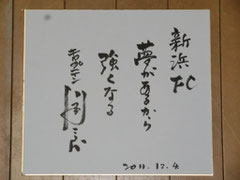 新浜
FC
夢があるから
強くなる
キャプテン
川淵三郎
2011.12.4